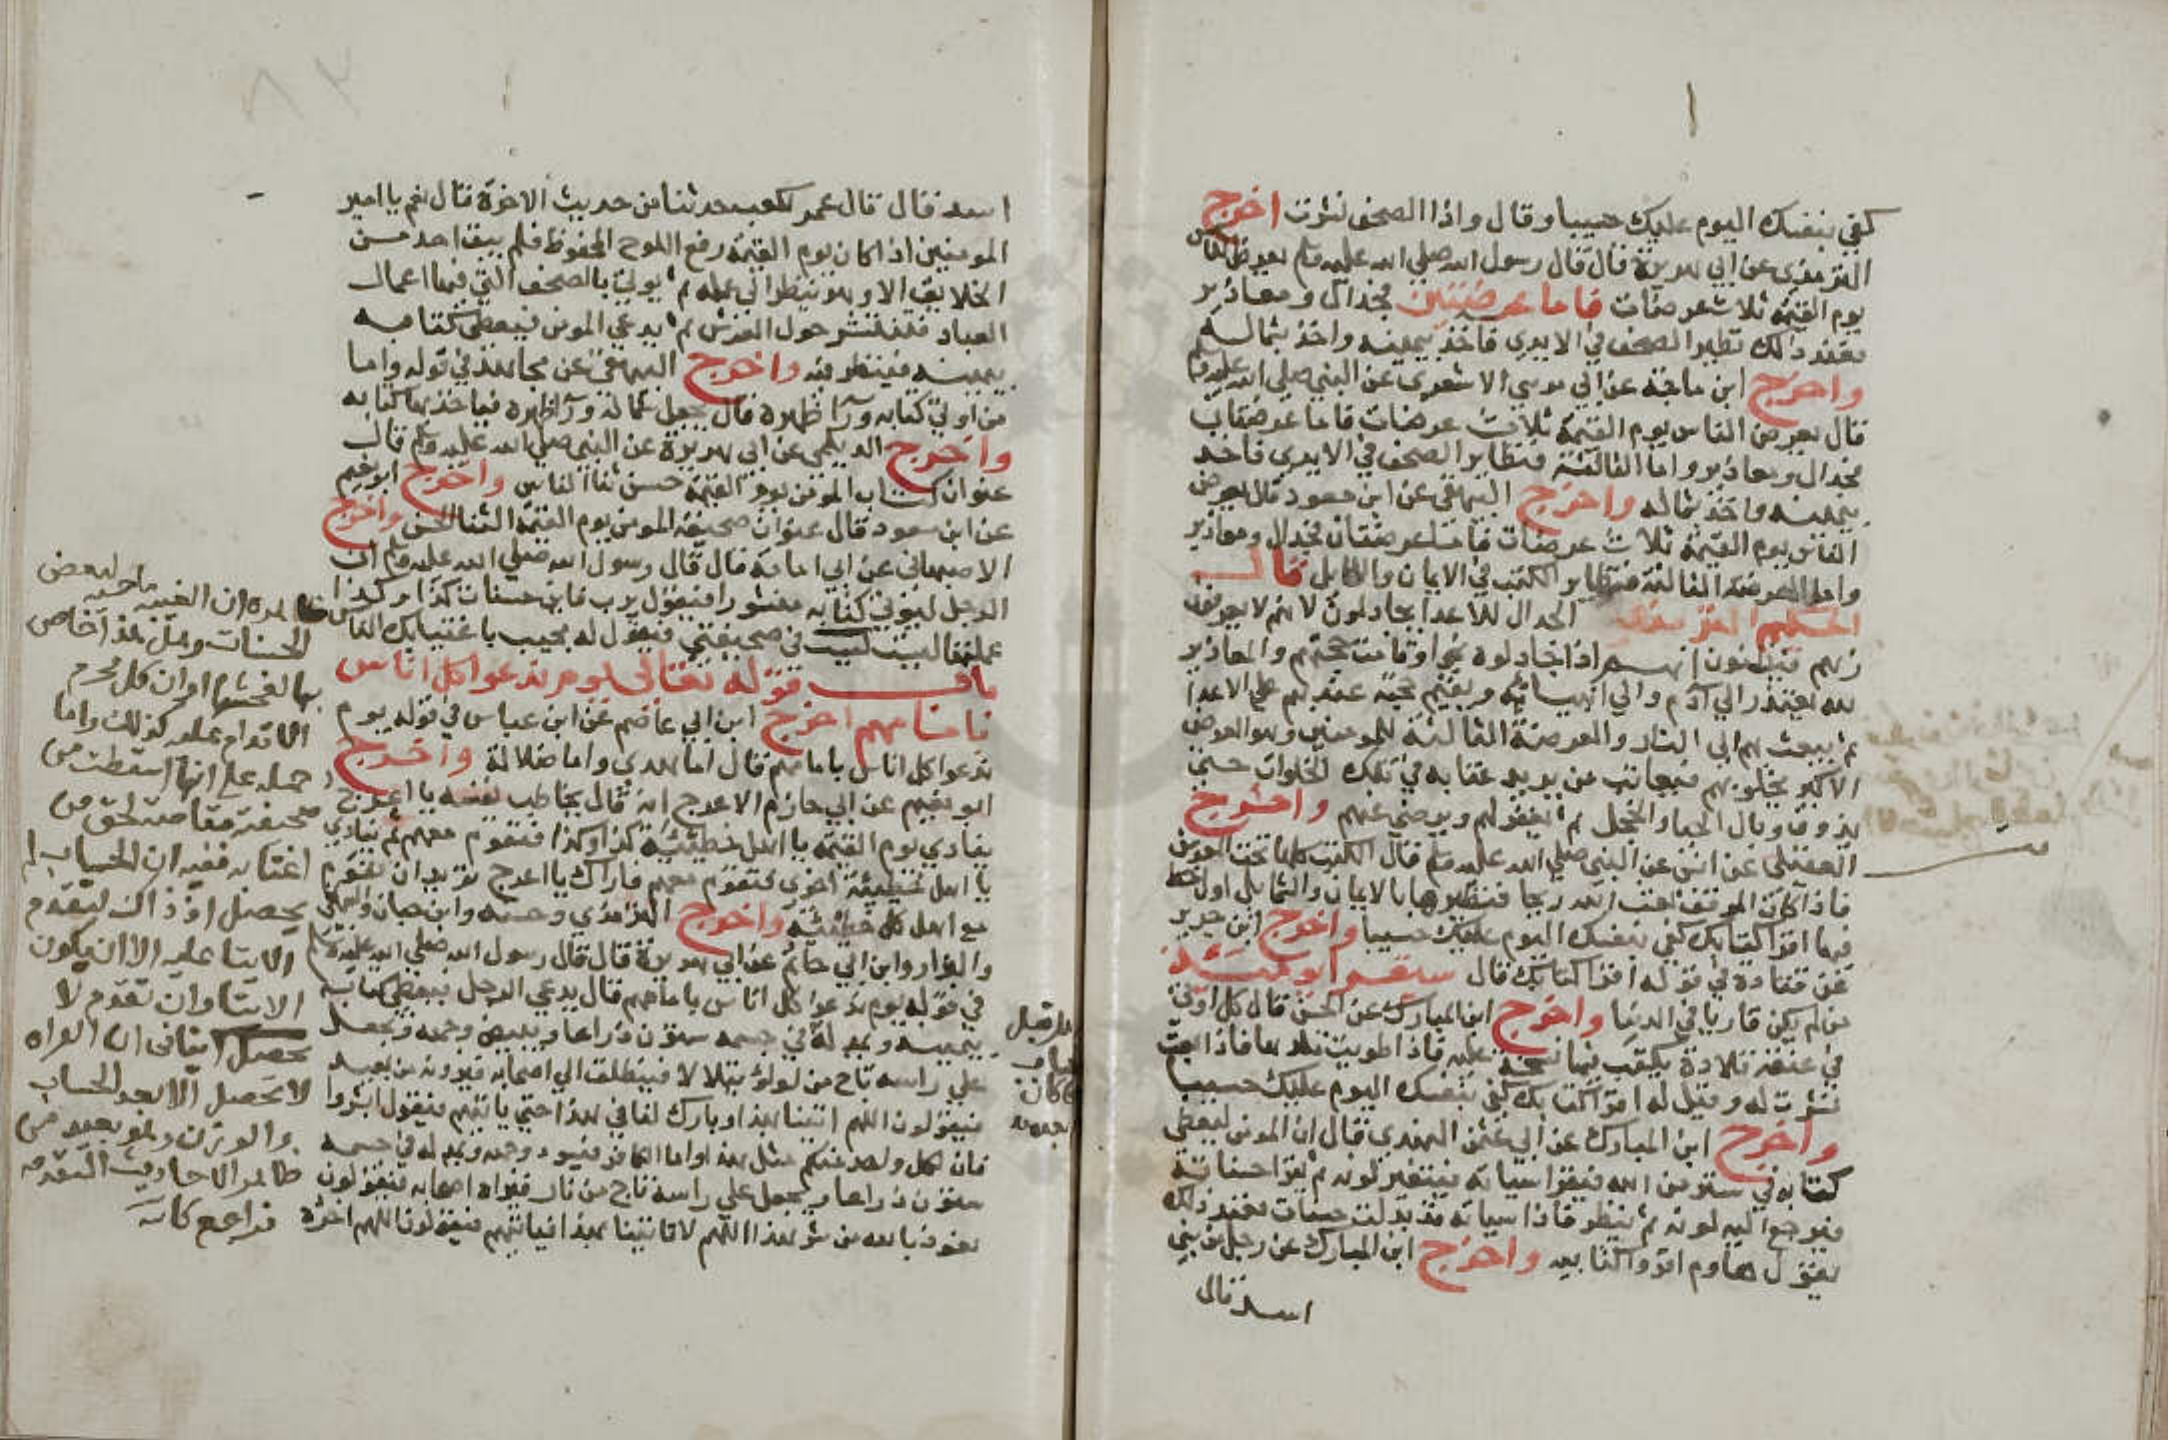 كفي بنفسك اليوم عليك حسيبا وقال واذا الصحف نشرت اخرج
الترمذي عن ابي هريرة قال قال رسول الله صلي الله عليه وسلم يعرض الناس
يوم القيمة ثلاث عرضات فاما عرضتين فجدال ومعاذير
فعند ذلك تطير الصحف في الايدي فاخذ بيمينه واخذ بشماله
واخرج ابن ماجة عن ابي موسي الاشعري عن النبي صلي الله عليه وسلم
قال يعرض الناس يوم القيمة ثلاث عرضات فاما عرضتان
فجدال ومعاذير واما الثالثة فتطاير الصحف في الايدي فاخذ
بيمينه واخذ بشماله واخرج البيهقي عن ابن مسعود قال يعرض
الناس يوم القيمة ثلاث عرضات فاما عرضتان فجدال ومعاذير
واما العرضة الثالثة فتطاير الكتب في الايمان والشمايل قال
الحكيم الترمذي الجدال للاعدا يجادلون لانهم لا يعرفون
ربهم فيظنون انهم اذا جادلوه نجوا وقامت حجتهم والمعاذير
لله يعتذر الي آدم والي انبيائه ويقيم حجته عندهم علي الاعدا
ثم يبعث بهم الي النار والعرضة الثالثة للمومنين وهو العرض
الاكبر يخلو بهم فيعاتب من يريد عتابه في تلك الخلوات حتي
يذوق وبال الحيا والخجل ثم يغفر لهم ويرضي عنهم واخرج
العقيلي عن انس عن النبي صلي الله عليه وسلم قال الكتب كلها تحت العرش
فاذا كان الموقف بعث الله ريحا فتطيرها بالايمان والشمايل اول خط
فيها اقرا كتابك كفي بنفسك اليوم عليك حسيبا واخرج ابن جرير
عن قتادة في قوله اقرا كتابك قال سيقرا يومئذ
من لم يكن قاريا في الدنيا واخرج ابن المبارك عن الحسن قال كل ادمي
في عنقه قلادة يكتب فيها نسخة عمله فاذا طويت قلدها فاذا بعث
نشرت له وقيل له اقرا كتابك كفي بنفسك اليوم عليك حسيبا
واخرج ابن المبارك عن ابي عثمن النهدي قال ان المومن ليعطي
كتابه في ستر من الله فيقرا سياته فيتغير لونه ثم يقرا حسناته
فيرجع اليه لونه ثم ينظر فاذا سياته قد بدلت حسنات فعند ذلك
يقول هاوم اقروا كتابيه واخرج ابن المبارك عن رجل من بني
اسد قال
اسد قال قال عمر لكعب حدثنا من حديث الاخرة قال نعم يا امير
المومنين اذا كان يوم القيمة رفع اللوح المحفوظ فلم يبق احد من
الخلايق الا وهو ينظر الي عمله ثم يوتي بالصحف التي فيها اعمال
العباد فتنشر حول العرش ثم يدعي المومن فيعطي كتابه
بيمينه فينظر فيه واخرج البيهقي عن مجاهد في قوله واما
من اوتي كتابه ورآ ظهره قال يجعل شماله ورآ ظهره فياخذ بها كتابه
واخرج الديلمي عن ابي هريرة عن النبي صلي الله عليه وسلم قال
عنوان كتاب المومن يوم القيمة حسن ثنا الناس واخرج ابو نعيم
عن ابن مسعود قال عنوان صحيفة المومن يوم القيمة الثنا الحسن واخرج
الاصبهاني عن ابي امامة قال قال رسول الله صلي الله عليه وسلم ان
الرجل ليوتي كتابه منشورا فيقول يرب فاين حسنات كذا وكذا
عملتها ليست في صحيفتي فيقول له محيت باغتيابك الناس
باب قوله تعالي يوم ندعوا كل اناس
بامامهم اخرج ابن ابي عاصم عن ابن عباس في قوله يوم
ندعوا كل اناس بامامهم قال امام هدي وامام ضلالة واخرج
ابو نعيم عن ابي حازم الاعرج انه قال يخاطب نفسه يا اعرج
ينادي يوم القيمة يا اهل خطيئة كذا وكذا فتقوم معهم ثم ينادي
يا اهل خطيئة اخري فتقوم معهم فاراك يا اعرج تريد ان تقوم
مع اهل كل خطيئة واخرج الترمذي وحسنه وابن حبان
والبزار وابن ابي حاتم عن ابي هريرة قال قال رسول الله صلي الله عليه وسلم
في قوله يوم ندعوا كل اناس بامامهم قال يدعي الرجل فيعطي كتابه
بيمينه ويمد له في جسمه ستون ذراعا ويبيض وجهه ويجعل
علي راسه تاج من لولو يتلالا فينطلق الي اصحابه فيرونه من بعيد
فيقولون اللهم ايتنا بهذا وبارك لنا في هذا حتي ياتيهم فيقول ابشروا
فان لكل واحد منكم مثل هذا واما الكافر فيسود وجهه ويمد له في جسمه
ستون ذراعا ويجعل علي راسه تاج من نار فيراه اصحابه فيقولون
نعوذ بالله من شر هذا اللهم لا تاتينا بهذا فياتيهم فيقولون اللهم اخزه
ظاهره ان الغيبة ماحية لبعض
الحسنات وهل هذا خاص
بها لفحشها او ان كل محرم
الاقدام عليه كذلك واما
حمله علي انها اسقطت من
صحيفته مقاصة لحق من
اغتابه ففيه ان الحساب لم
يحصل اذ ذاك
الايتا عليه الا ان يكون
الايتا وان تقدم لا
يحصل
لا تحصل الا بعد الحساب
والوزن وهو بعيد من
ظاهر الاحاديث المتقدمة
فراجع كاتبه